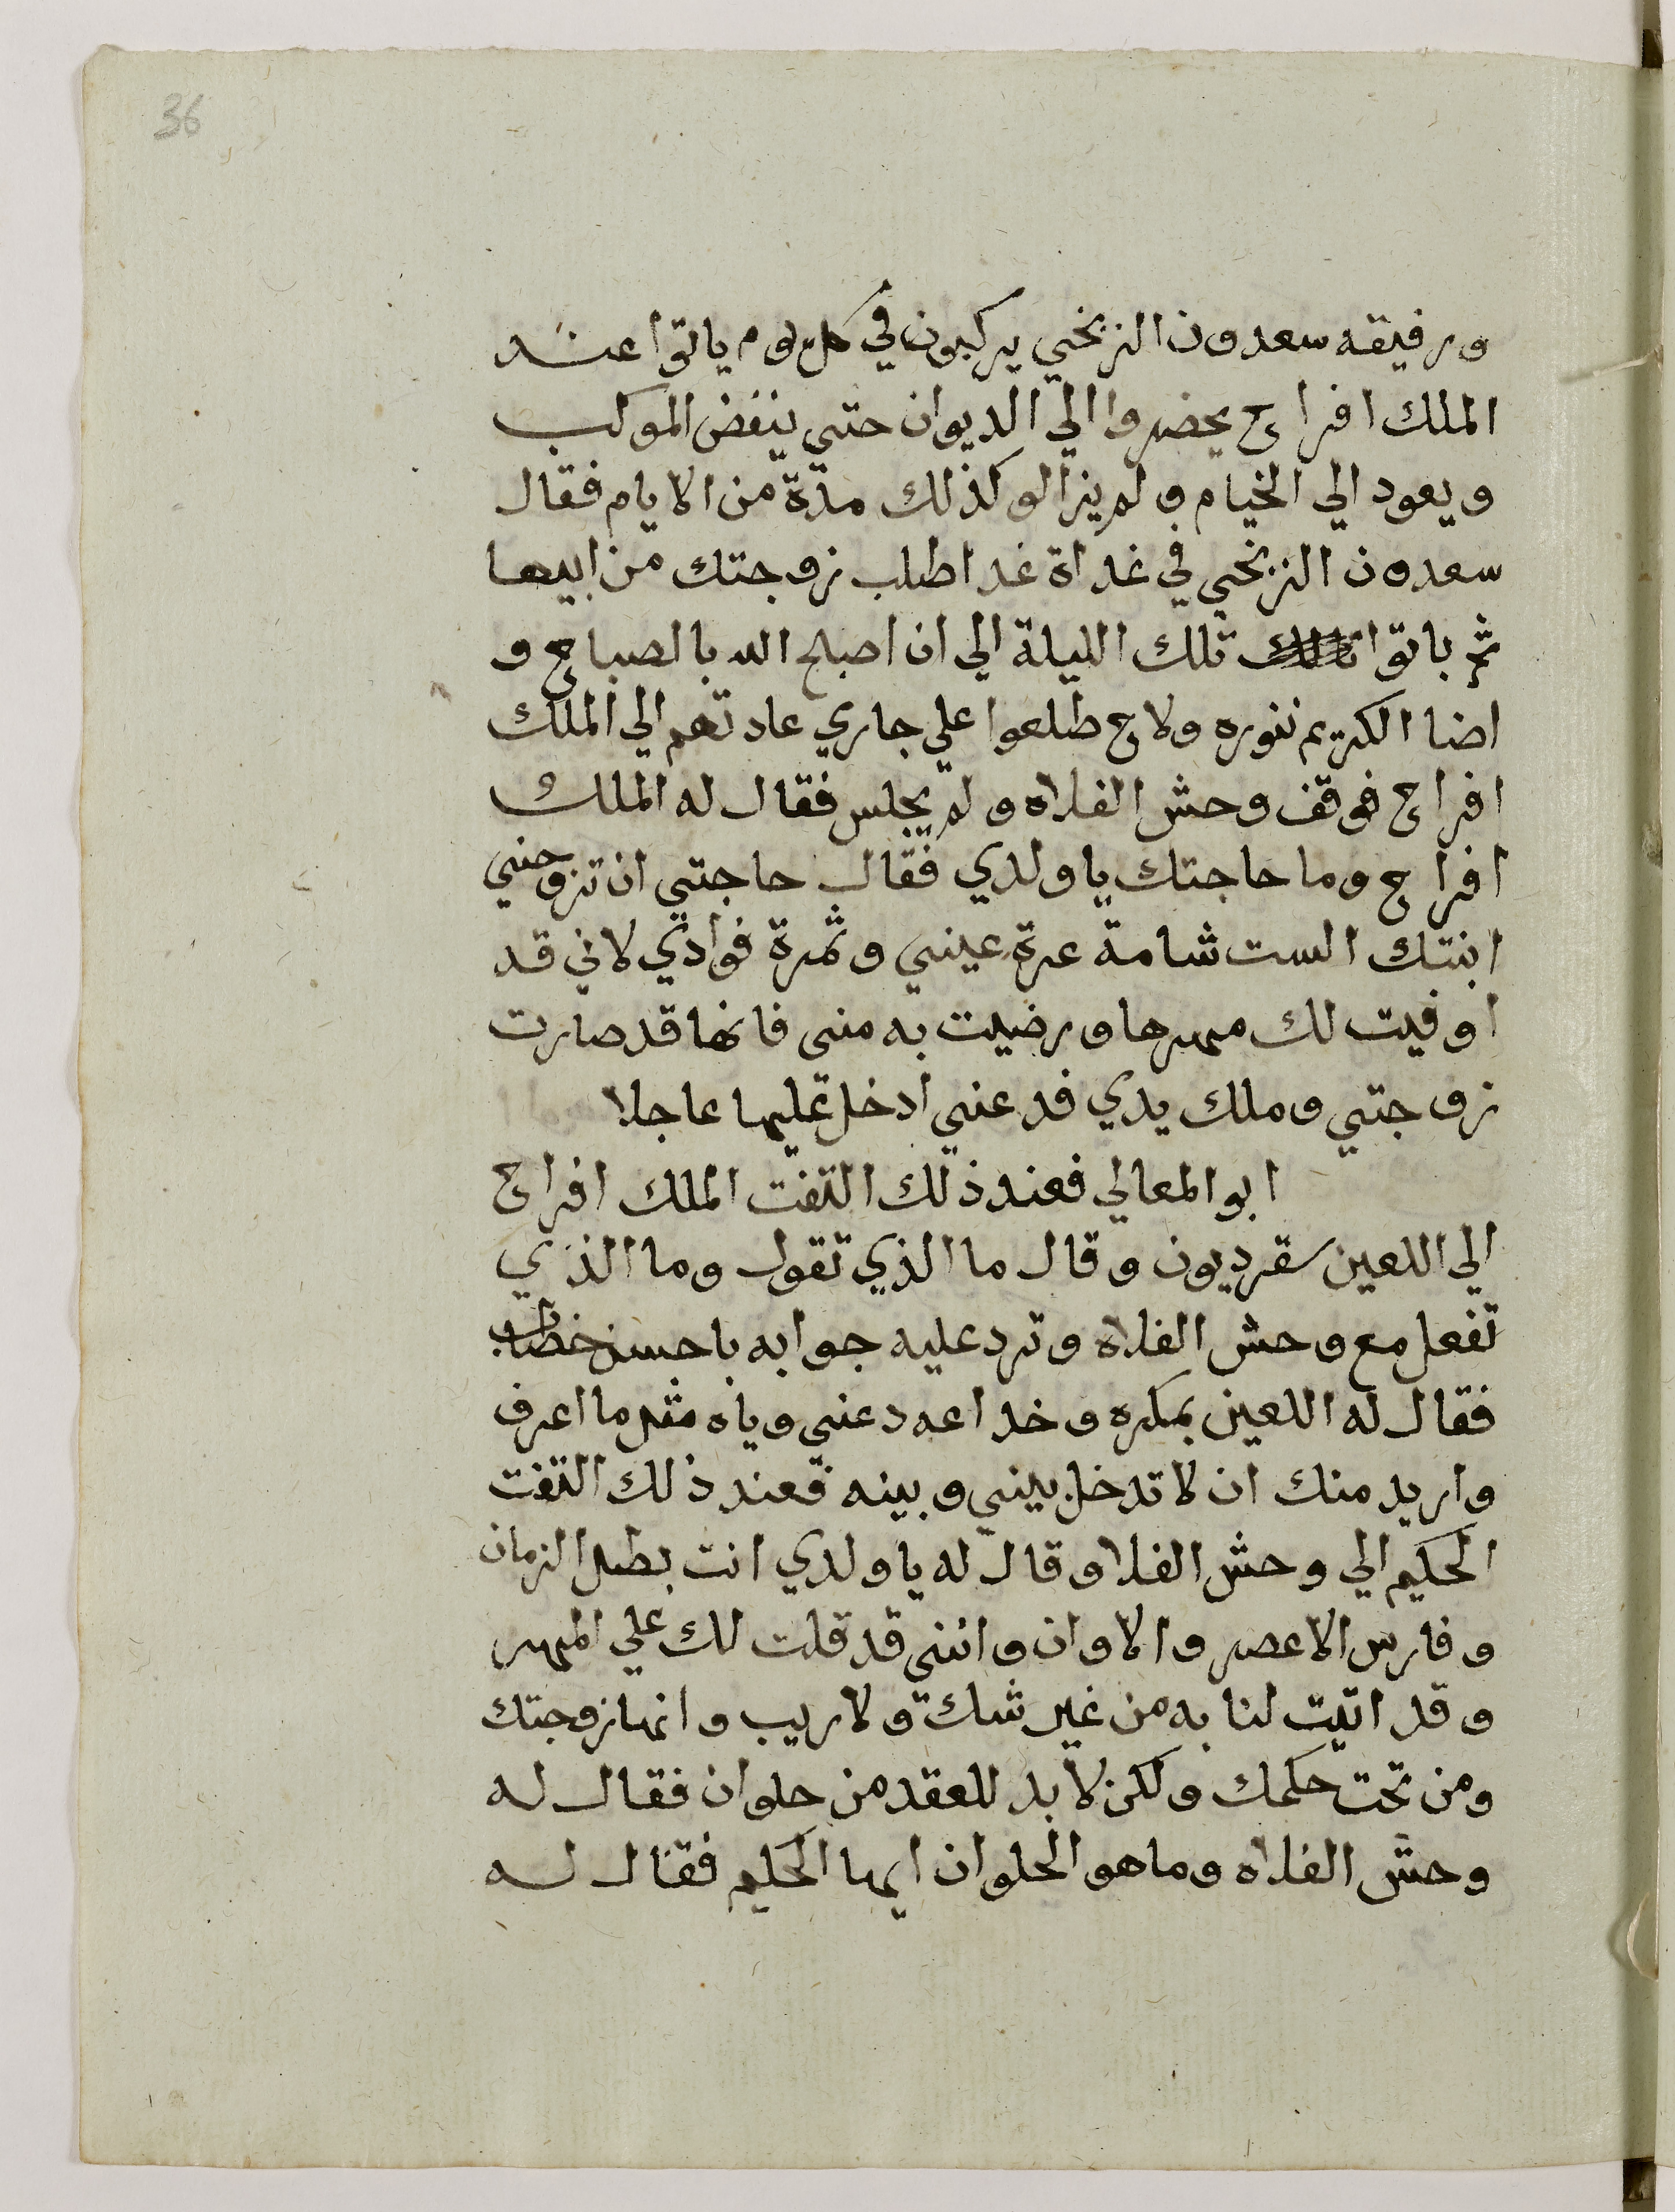 36
ورفيقه سعدون الزنجي يركبون في كل يوم ياتوا عند
الملك افراح يحضروا الي الديوان حتي ينفض الموكب
ويعود الي الخيام ولم يزالو كذلك مدة من الايام فقال
سعدون الزنجي في غداة غد اطلب زوجتك من ابيها
ثم باتوا تلك الليلة الي ان اصبح الله بالصباح و
اضا الكريم بنوره ولاح طلعوا علي جاري عادتهم الي الملك
افراح فوقف وحش الفلاه ولم يجلس فقال له الملك
افراح وما حاجتك يا ولدي فقال حاجتي ان تزوجني
ابنتك الست شامة عرة عيني وثمرة فوادي لاني قد
اوفيت لك مهرها ورضيت به مني فانها قد صارت
زوجتي وملك يدي فدعني ادخل عليها عاجلا
ابو المعالي فعند ذلك التفت الملك افراح
الي اللعين سقرديون وقال ما الذي تقول وما الذي
تفعل مع وحش الفلاه وترد عليه جوابه باحسن خطاب
فقال له اللعين بمكره وخداعه دعني وياه مثل ما اعرف
واريد منك ان لا تدخل بيني وبينه فعند ذلك التفت
الحكيم الي وحش الفلا وقال له يا ولدي انت بطل الزمان
وفارس الاعصر والاوان وانني قد قلت لك علي المهر
وقد اتيت لنا به من غير شك ولا ريب وانها زوجتك
ومن تحت حكمك ولكن لا بد للعقد من حلوان فقال له
وحش الفلاه وما هو الحلوان ايها الحكيم فقال له